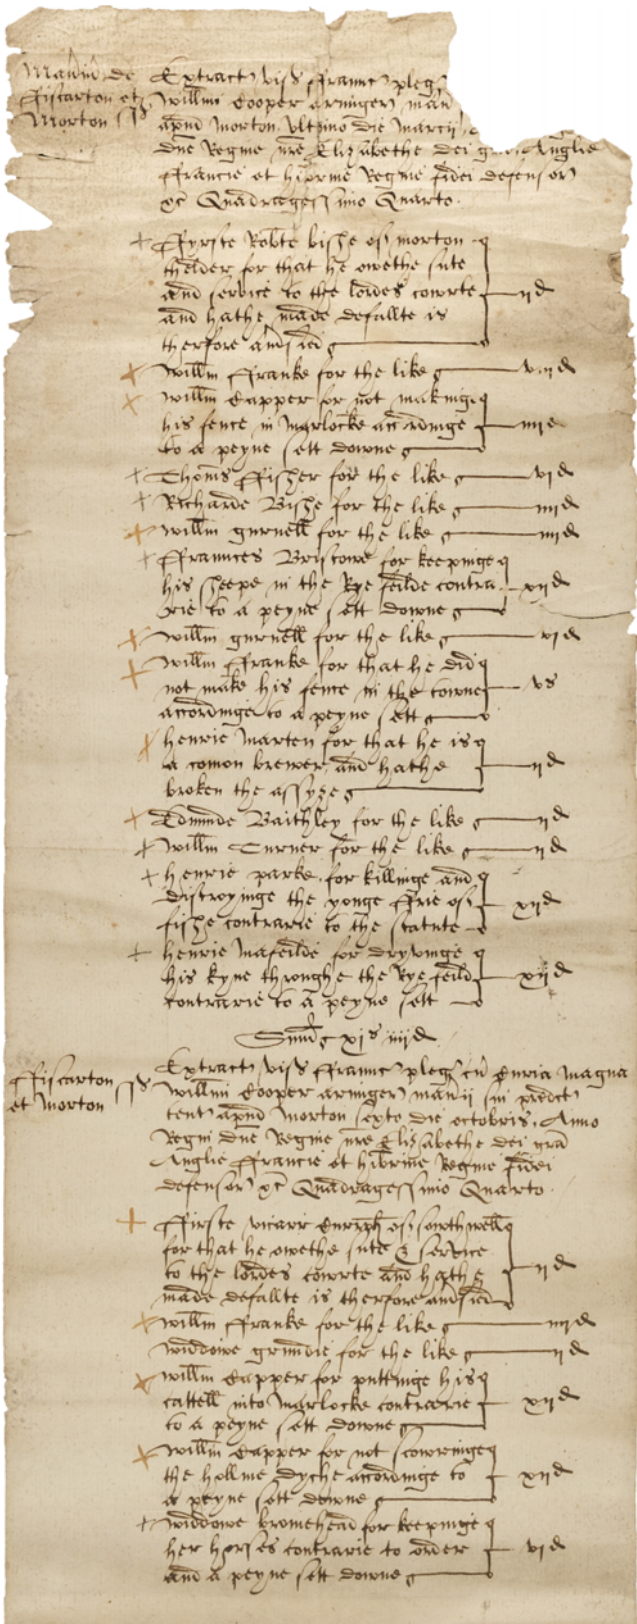 Man'ii de Extract' vis' ffranc' pleg'
ffiscarton et Willmi Cooper armiger' man'
Morton ss apud Morton vltimo die Marcii
dne Regine nre Elizabethe dei gra Anglie
ffrancie et hibernie Regine fidei defensor'
&c Quadragessimo Quarto.
+ ffyrste Robte bishe of morton
thelder for that he owethe sute
and service to the lordes cowrte – ijd
and hathe made defallte is
therfore am'sied
+ Willm ffranke for the like – viijd
+ Willm Capper for not makinge
his fence in Marlocke accordinge – iiijd
to a peyne sett downe
+ Thoms ffisher for the like – vjd
+ Richarde Bishe for the like – iiijd
+ Willm gurnell for the like – iiijd
+ ffraunces Briscowe for keepinge
his sheepe in the Rye feilde contra – xijd
rie to a peyne sett downe
+ Willm gurnell for the like – vjd
+ Willm ffranke for that he did
not make his fence in the towne – vs
accordinge to a peyne sett
+ henrie Marten for that he is
a comon brewer and hathe – ijd
broken the assyse
+ Edmunde Baithley for the like – ijd
+ Willm Turner for the like – ijd
+ henrie parke for killinge and
distroyinge the yonge ffrie of – xijd
fishe contrarie to the statute
+ henrie Mafeilde for dryvinge
his kyne throughe the Rye feild – xijd
contrarie to a peyne sett
Sm xjs iiijd
Extract' vis' ffranc' pleg' cu' Curia Magna
ffiscarton ss Willmi Cooper armiger' man'ii sui predict'
et Morton tent' apud Morton sexto die octobris. Anno
Regni dne Regine nre Elizabethe dei gra
Anglie ffrancie et hibernie Regine fidei
defensor' &c Quadragessimo Quarto.
+ ffirste vicarr of sowthwell
for that he owethe sute & service
to the lordes cowrte and hathe – ijd
made defallte is therfore am'sied
+ Willm ffranke for the like – iiijd
Widdowe grindie for the like – ijd
+ Willm Capper for puttinge his
cattell into Marlocke contrarie – xijd
to a peyne sett downe
+ Willm Capper for not scowringe
the hollme dyche accordinge to – xijd
a peyne sett downe
+ Widdowe bromehead for keepinge
her horses contrarie to order – vjd
and a peyne sett downe